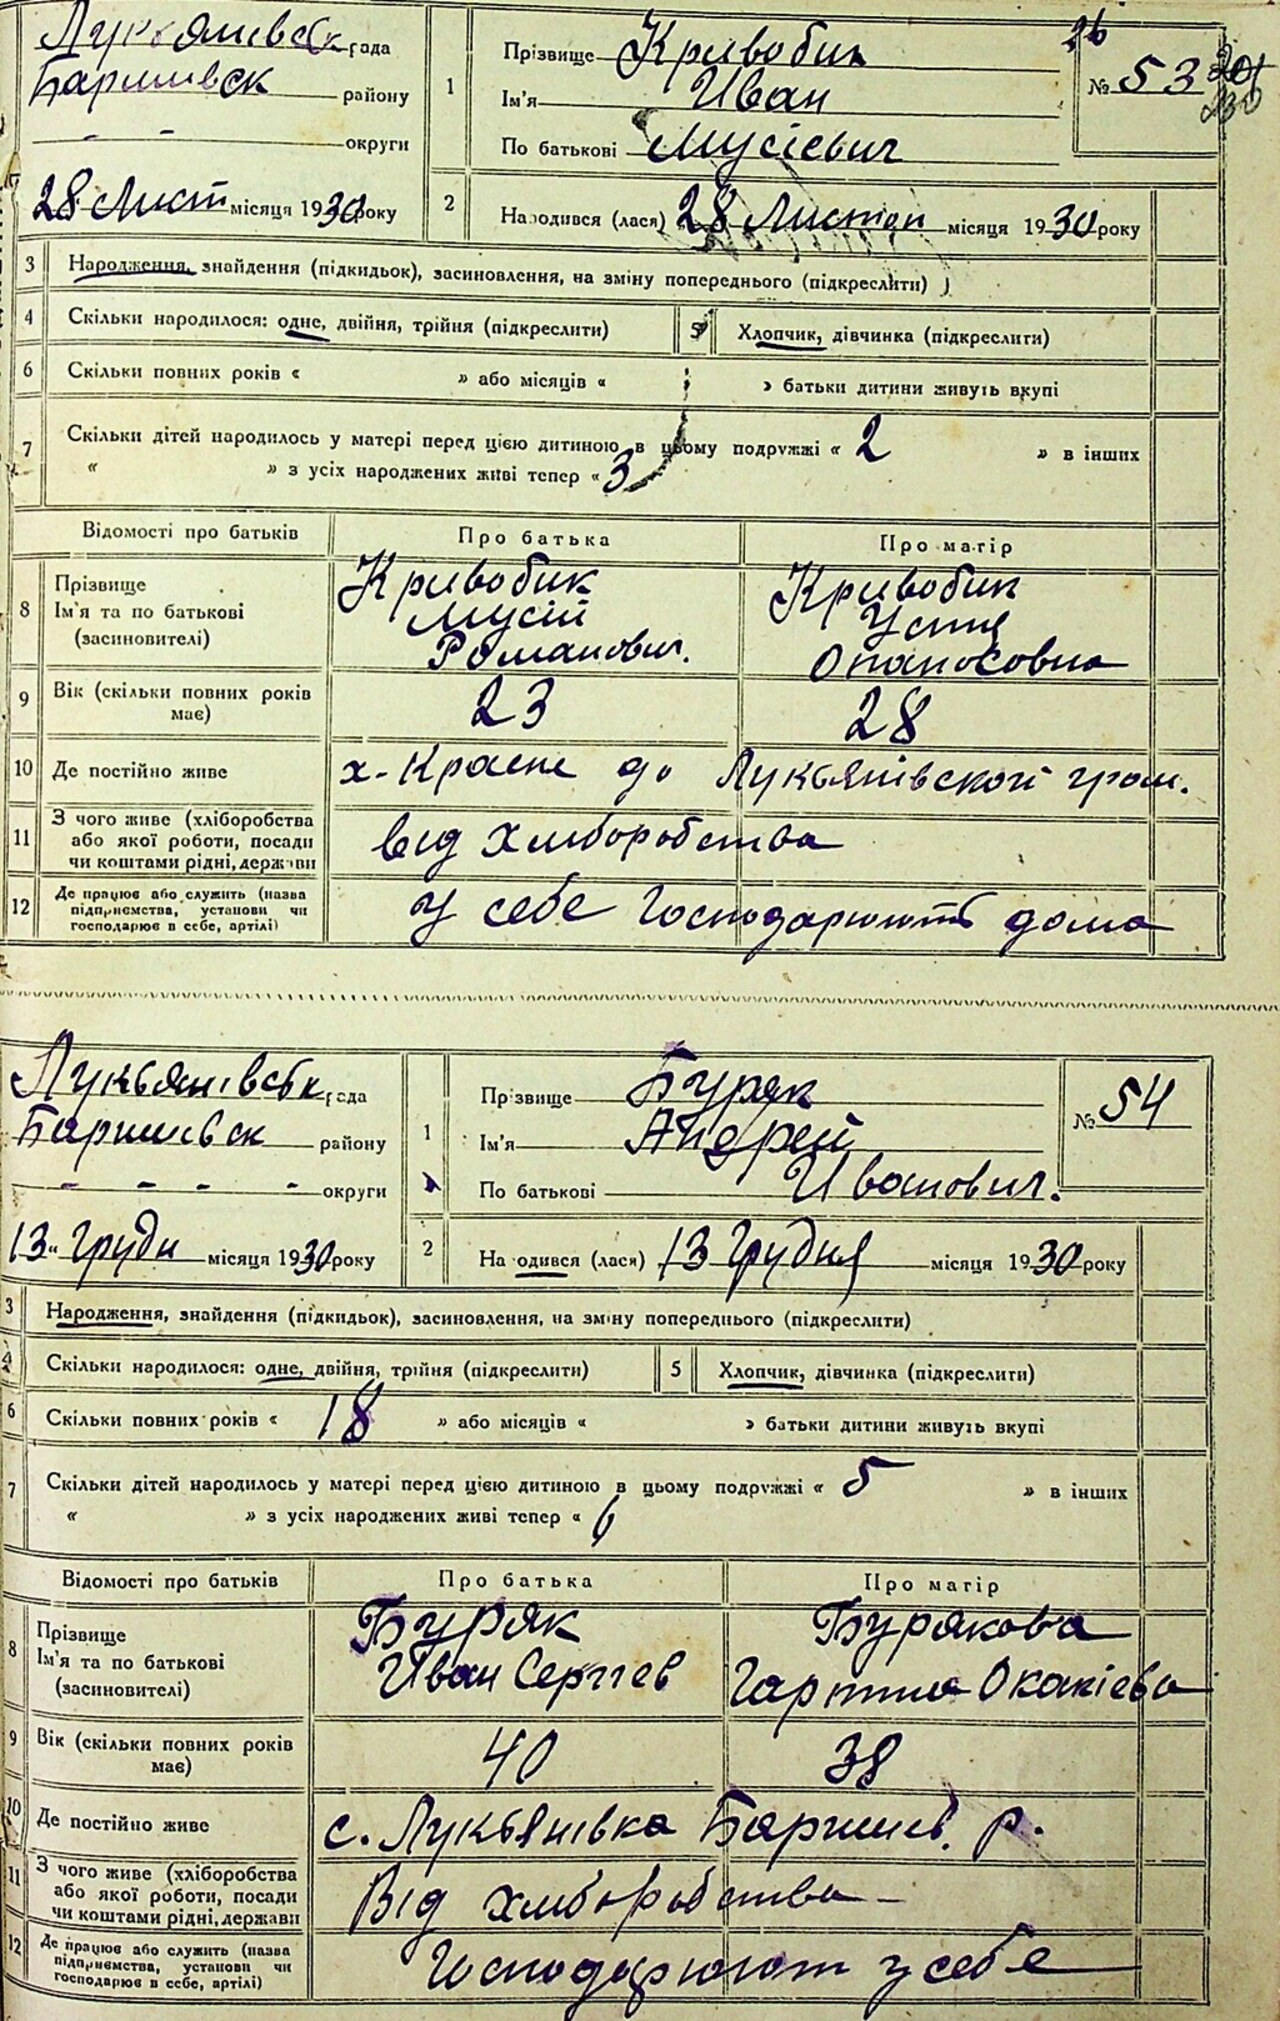 Лукьянівськ рада
Баришівск району
- - округи
28 Лист місяця 1930 року
1
Прізвище Кривобик
Ім'я Иван
По батькові Мусієвич
26
№ 53
2 Народився (лася) 28 Листоп місяця 1930 року
3 Народження, знайдення (підкидьок), засиновлення, на зміну попереднього (підкреслити)
4 Скільки народилося: одне, двійня, трійня (підкреслити) 5 Хлопчик, дівчинка (підкреслити)
6 Скільки повних років « » або місяців « » батьки дитини живуть вкупі
7 Скільки дітей народилось у матері перед цією дитиною в цьому подружжі « 2 » в інших
« » з усіх народжених живі тепер « 3
Відомості про батьків Про батька Про матір
8 Прізвище Кривобик Кривобик
Ім'я та по батькові Мусій Устя
(засиновителі) Романович. Опанасовна
9 Вік (скільки повних років має) 23 28
10 Де постійно живе х. Красне до Лукьянівской гром.
11 З чого живе (хліборобства
або якої роботи, посади від хліборобства
чи коштами рідні, держави
12 Де працює або служить (назва
підприємства, установи чи у себе господарюють дома
господарює в себе, артілі)
Лукьянівськ рада
Баришівск району
- - - - округи
13 Грудн місяця 1930 року
1
Прізвище Буряк
Ім'я Андрей
По батькові Иванович.
№ 54
2 Народився (лася) 13 Грудня місяця 1930 року
3 Народження, знайдення (підкидьок), засиновлення, на зміну попереднього (підкреслити)
4 Скільки народилося: одне, двійня, трійня (підкреслити) 5 Хлопчик, дівчинка (підкреслити)
6 Скільки повних років « 18 » або місяців « » батьки дитини живуть вкупі
7 Скільки дітей народилось у матері перед цією дитиною в цьому подружжі « 5 » в інших
« » з усіх народжених живі тепер « 6
Відомості про батьків Про батька Про матір
8 Прізвище Буряк Бурякова
Ім'я та по батькові Иван Сергієв Гарпина Окакієва
(засиновителі)
9 Вік (скільки повних років має) 40 38
10 Де постійно живе с. Лукьянівка Баришів. р.
11 З чого живе (хліборобства
або якої роботи, посади Від хліборобства -
чи коштами рідні, держави
12 Де працює або служить (назва
підприємства, установи чи Господарюют у себе
господарює в себе, артілі)